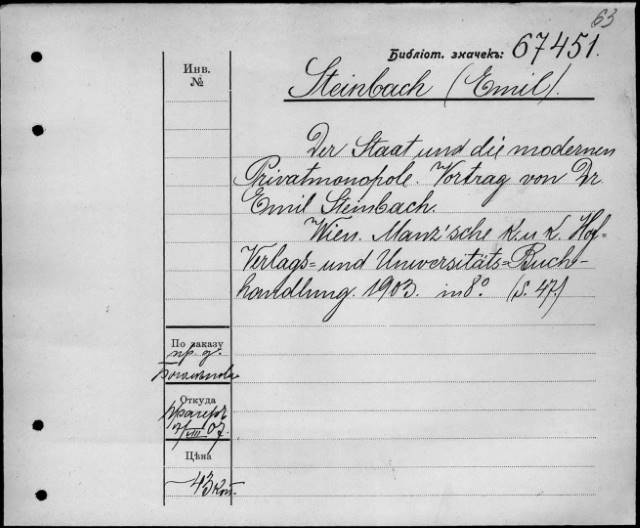 63
Библіот. значекъ: 67451.
Инв.
№
Steinbach (Emil).
Der Staat und die modernen
Privatmonopole. Vortrag von Dr
Emil Steinbach.
Wien. Manz'sche K. u K. Hof-
Verlags= und Universitäts=Buch-
handlung. 1903. in 8º (S. 47.)
По заказу
пр. д.
Откуда
/III 07.
Цѣна
43 коп.